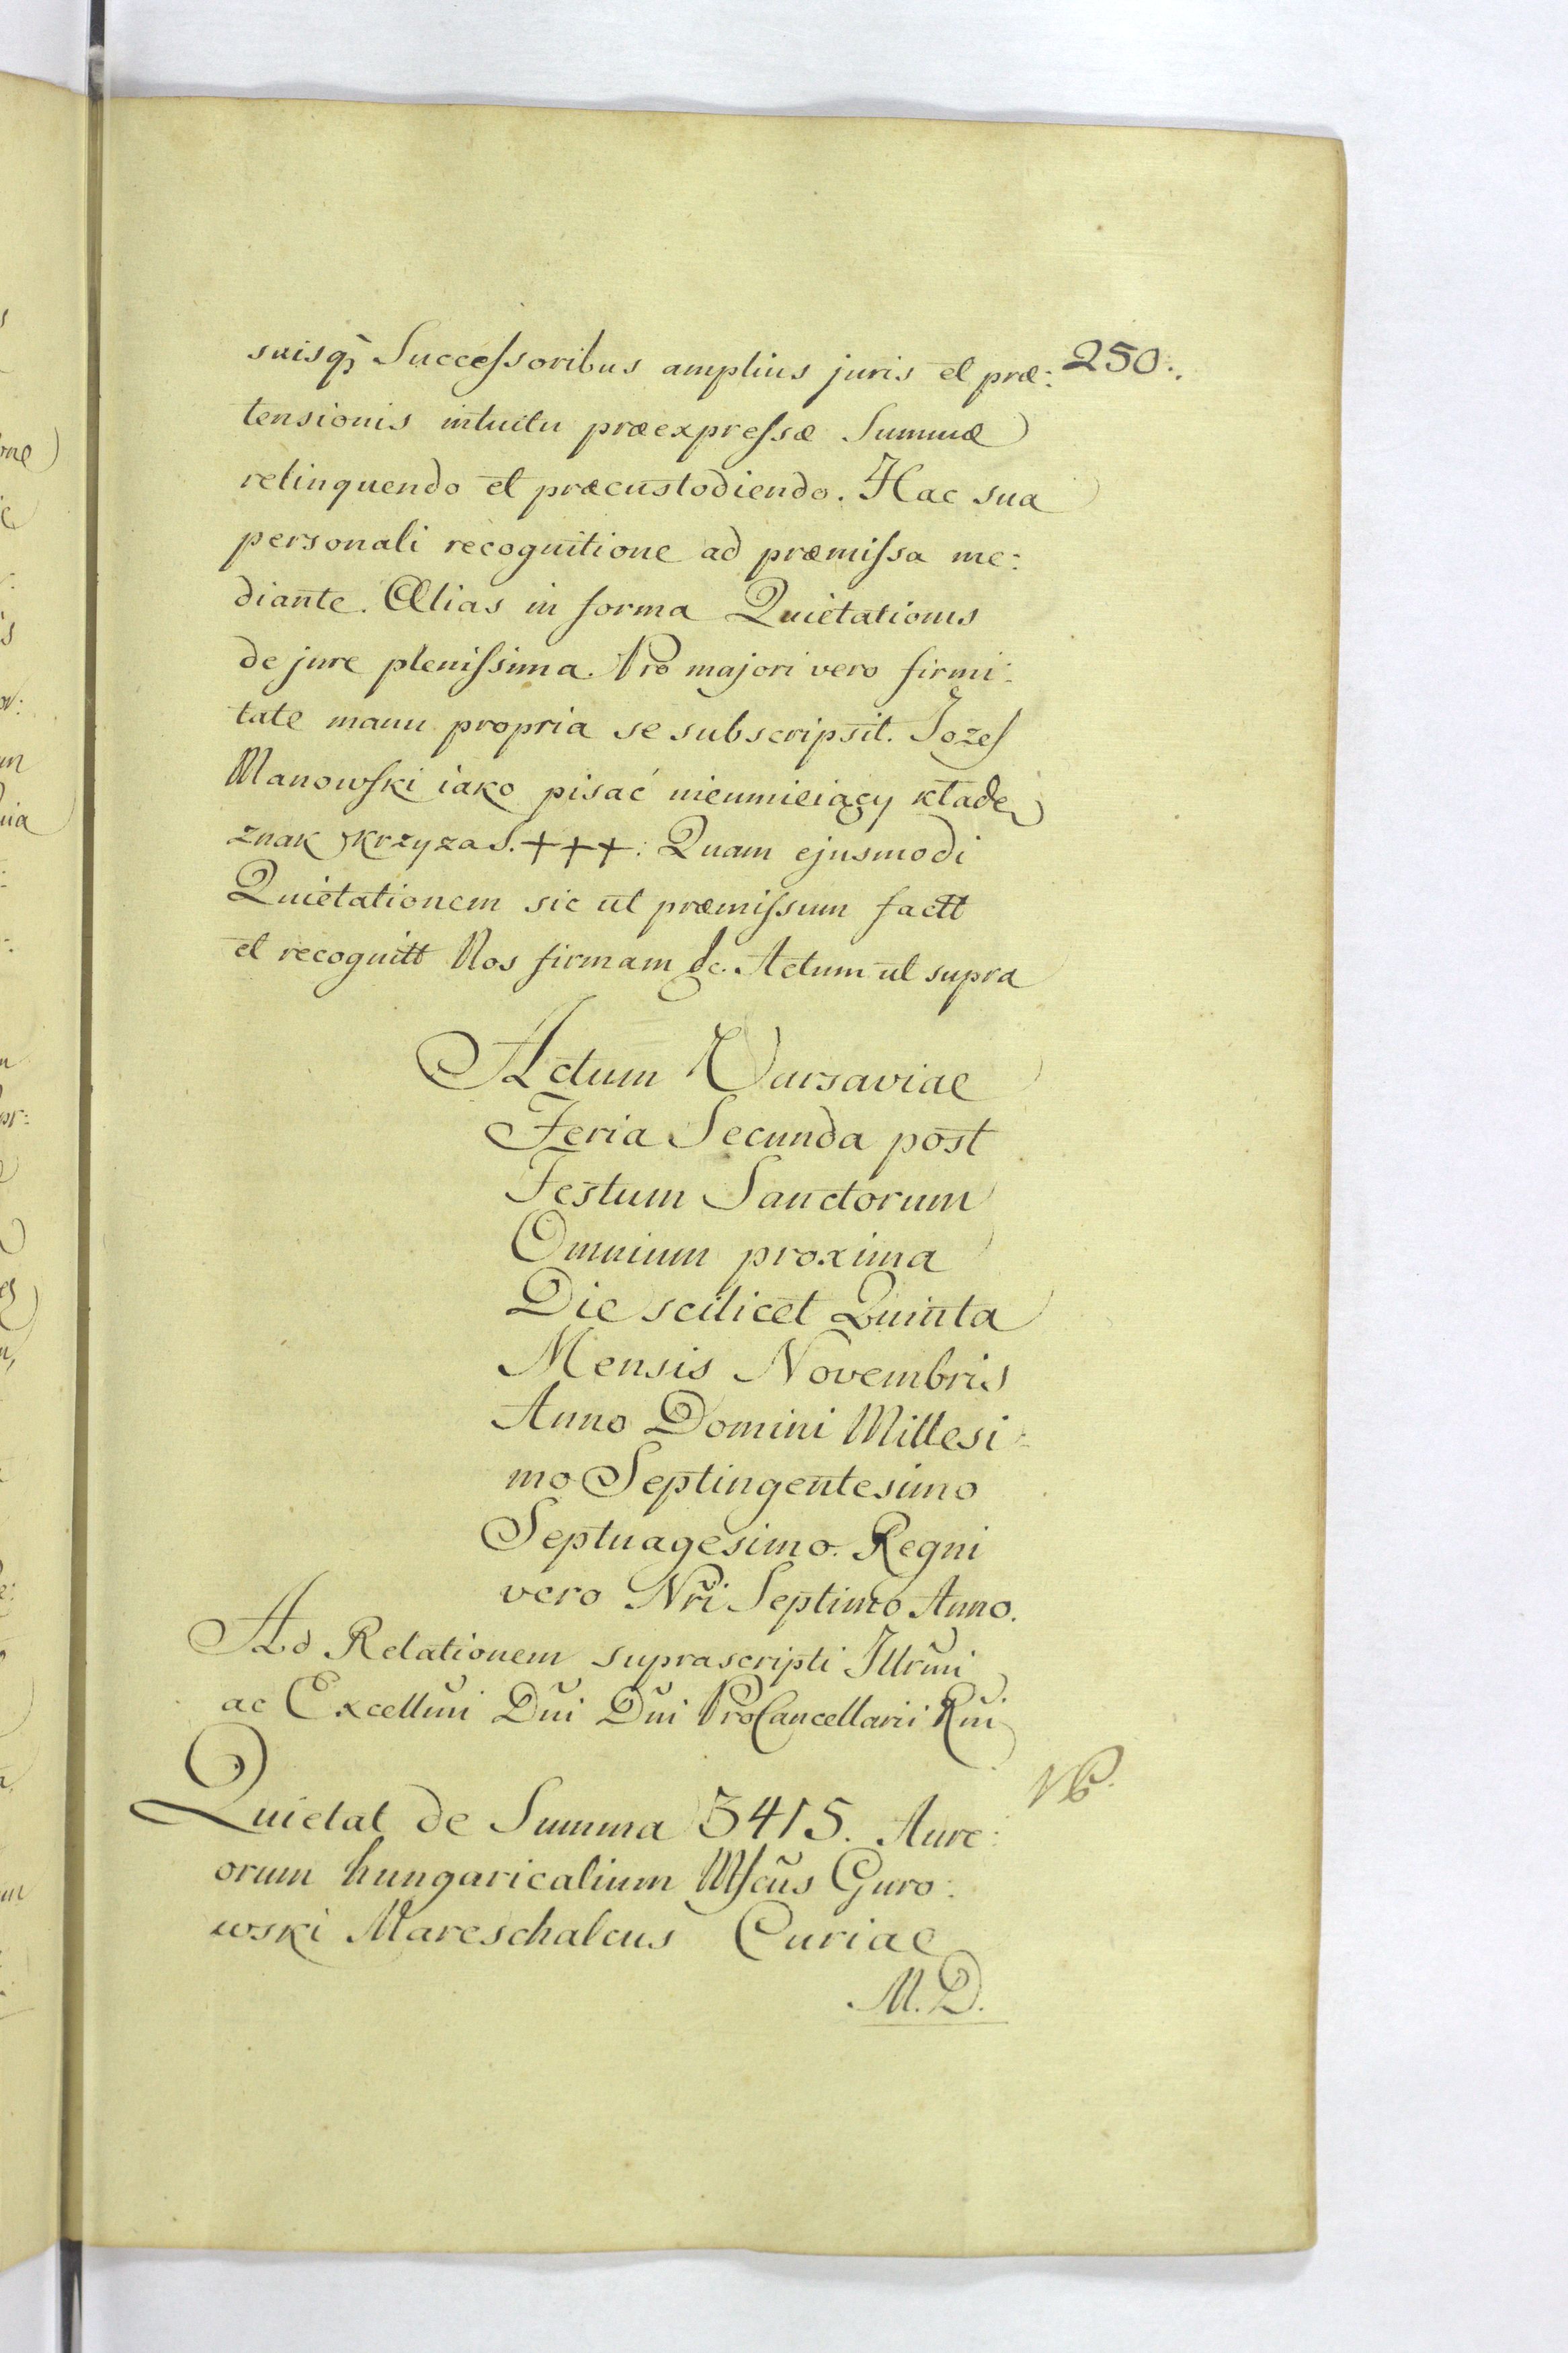 250.
suisq́ Successoribus amplius juris et præ:
tensionis intuitu præexpressæ Summæ
relinquendo et præcustodiendo. Hac sua
personali recognitione ad præmissa me:
diante. Alias in forma Quietationis
de jure plenissima. Pro majori vero firmi:
tate manu propria se subscripsit. Jozef
Manowski iako pisać nieumieiący kłade
znak krzyza S. +++. Quam ejusmodi
Quietationem sic ut præmissum factt
et recognitt Nos firmam &c. Actum ut supra
Actum Varsaviae
Feria Secunda post
Festum Sanctorum
Omnium proxima
Die scilicet Quinta
Mensis Novembris
Anno Domini Millesi:
mo Septingentesimo
Septuagesimo. Regni
vero Nri Septimo Anno.
Ad Relationem suprascripti Illrmi
ac Excellmi Dni Dni ProCancellarii Rni
Quietat de Summa 3415. Aure:
orum hungaricalium Mfcus Guro:
wski Mareschalcus Curiae
M. D.